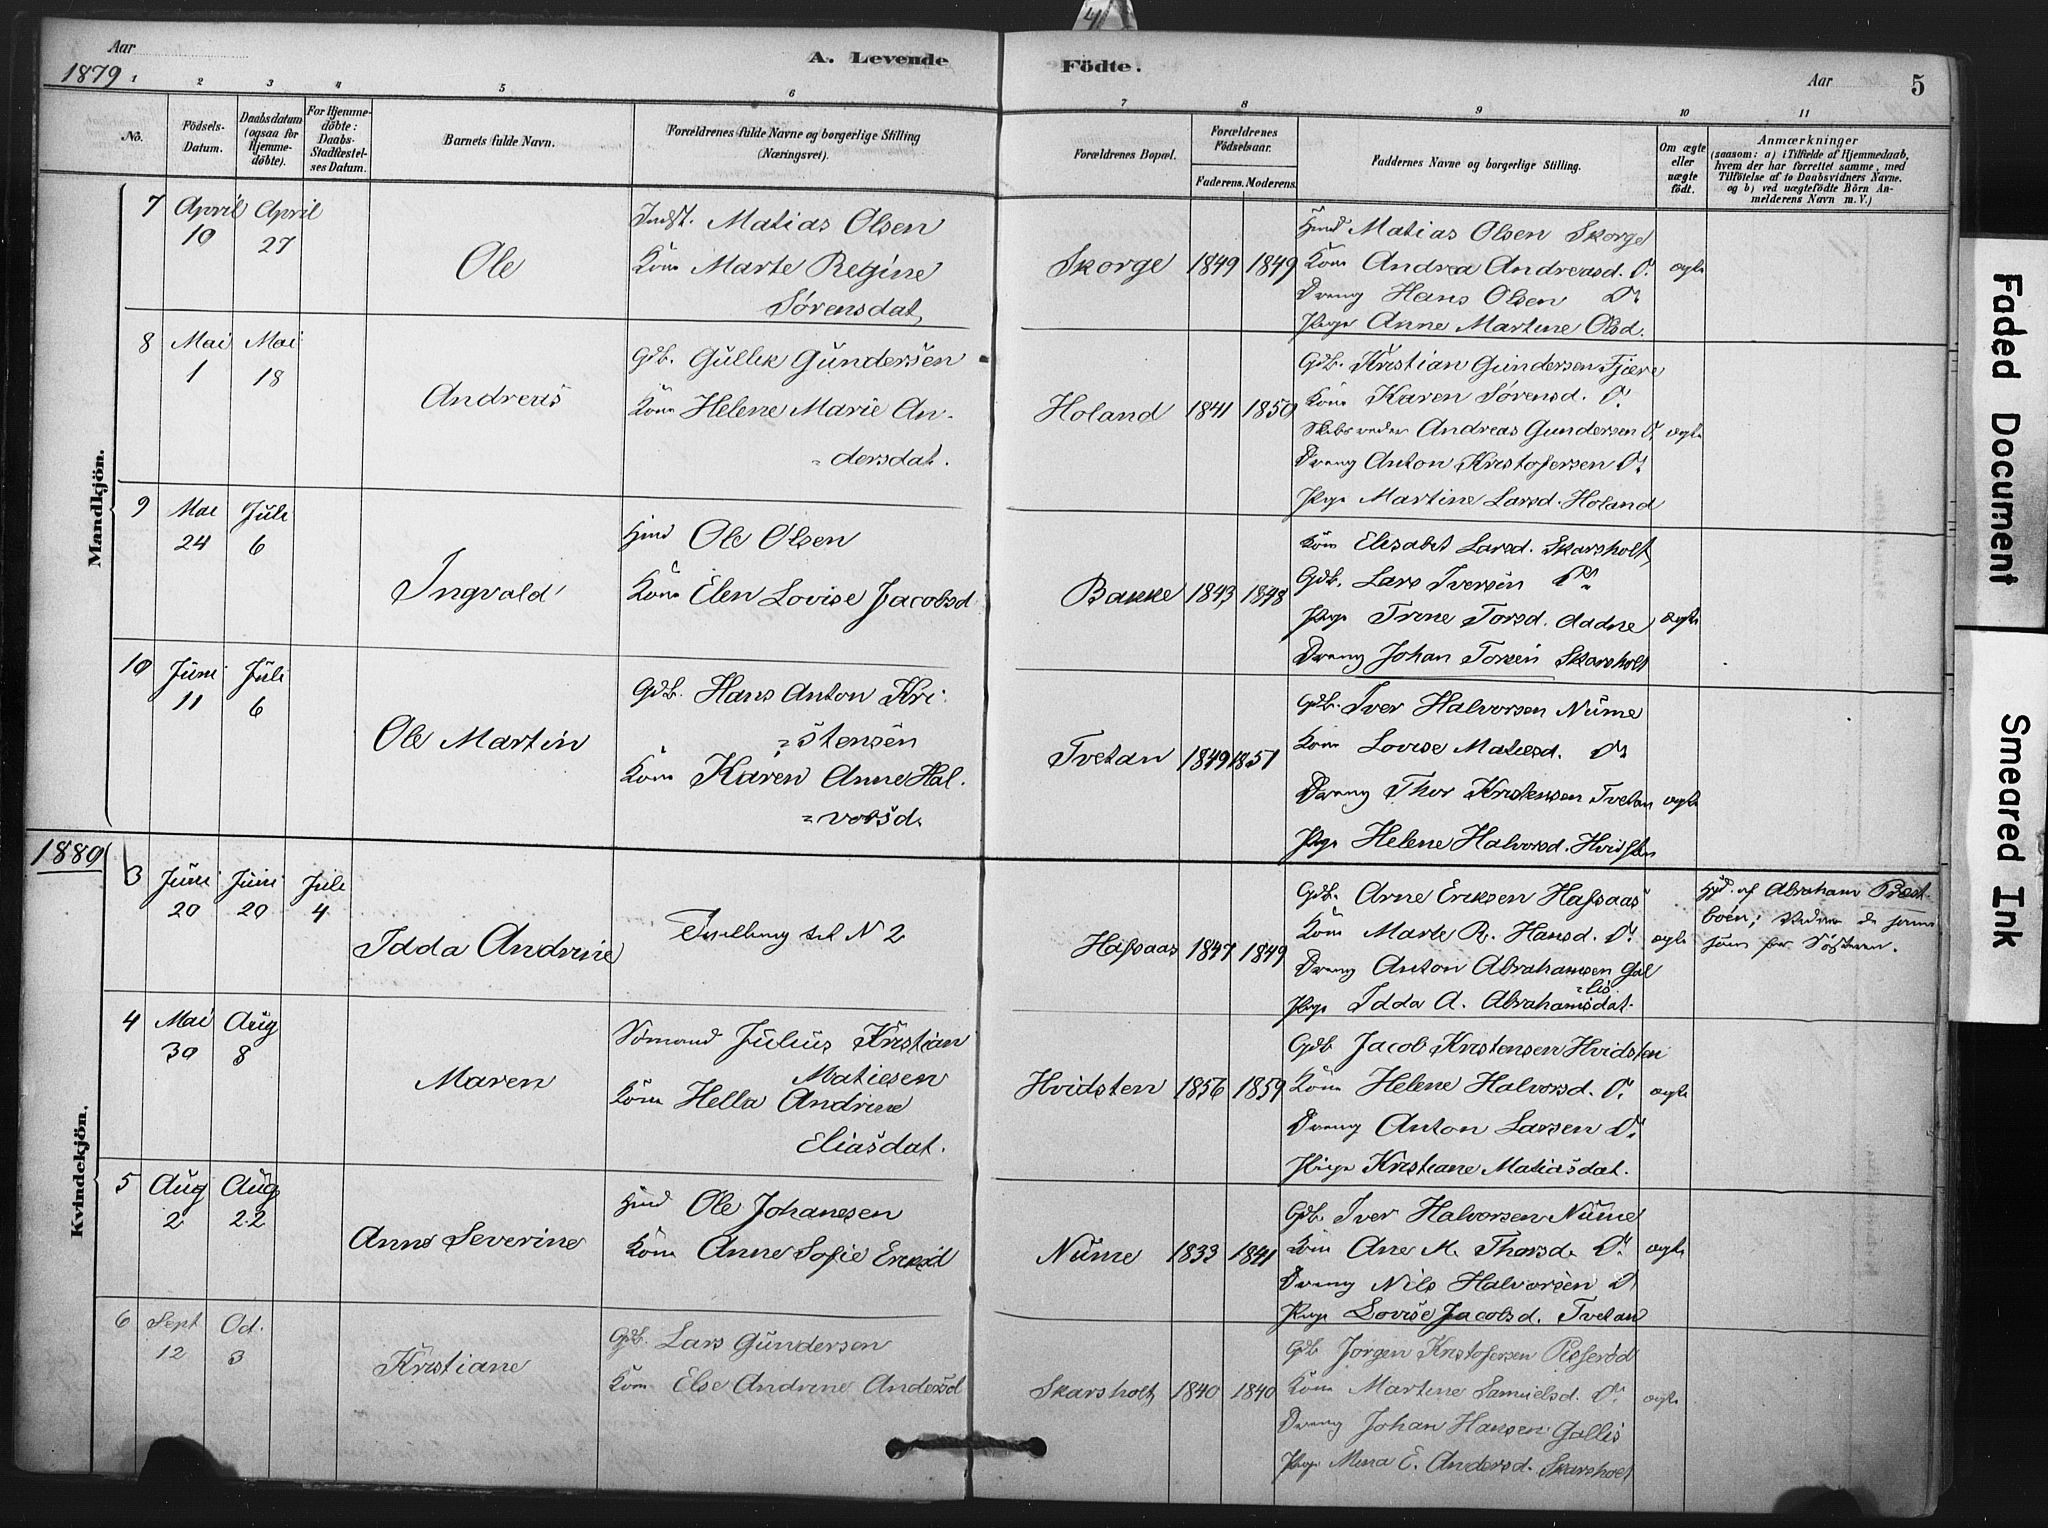 Aar
1879
A. Levende Födte.
Aar
5
1 2 3 4 5 6 7 8 9 10 11
No.
Födsels-
Datum.
Daabsdatum
(ogsaa for
Hjemme-
döbte).
For Hjemme-
döbte:
Daabs-
Stadfæstel-
ses Datum.
Barnets fulde Navn.
Forældrenes fulde Navne og borgerlige Stilling
(Næringsvei).
Forældrenes Bopæl.
Forældrenes
Födselsaar.
Faderens. Moderens.
Faddernes Navne og borgerlige Stilling.
Om ægte
eller
uægte
födt.
Anmærkninger
(saasom: a) i Tilfælde af Hjemmedaab,
hvem der har forrettet samme, med
Tilföielse af to Daabsvidners Navne.
og b) ved uægtefödte Börn An-
melderens Navn m. V.)
Mandkjön.
7 April 19 April 27
Ole
Indst. Matias Olsen
Kone Marte Regine
Sørensdat.
Skorge 1849 1849
Hmd Matias Olsen Skorge
Kone Andrea Andreasd. Do
Dreng Hans Olsen Do
Pige Anne Martine Olsd.
ægte
8 Mai 1 Mai 18
Andreas
Gdb. Gullik Gundersen
Kone Helene Marie An-
dersdat.
Holand 1841 1850
Gdb. Kristian Gundersen Fjære
Kone Karen Sørensd. Do
Skibsreder Andreas Gundersen Do
Dreng Anton Kristofersen Do
Pige Martine Larsd. Holand
ægte
9 Mai 24 Juli 6
Ingvald
Hmd Ole Olsen
Kone Elen Lovise Jacobsd
Bakke 1843 1848
Kone Elisabet Larsd. Skarsholt
Gdb. Lars Iversen Do
Pige Trine Torsd. Aadne
Dreng Johan Torsen Skarsholt
ægte
10 Juni 11 Juli 6
Ole Martin
Gdb. Hans Anton Kri-
stensen
Kone Karen Anne Hal-
vorsd.
Tvetan 1849 1851
Gdb. Iver Halvorsen Nume
Kone Lovise Matiesd. Do
Dreng Thor Kristensen Tvetan
Pige Helene Halvorsd. Hvidsten
ægte
1880
Kvindekjön.
3 Juni 20 Juni 20 Juli 4
Idda Andrine
Tvilling til N 2
Hafsaas 1847 1849
Gdb. Arne Eriksen Hafsaas
Kone Marte R. Hansd. Do
Dreng Anton Abrahamsen Gal-
lis
Pige Idda A. Abrahamsdat.
ægte
Hjd. af Abraham
Vidner de samme
som for Søsteren.
4 Mai 30 Aug 8
Maren
Sømand Julius Kristian
Matiesen
Kone Hella Andrine
Eliasdat.
Hvidsten 1856 1859
Gdb Jacob Kristensen Hvidsten
Kone Helene Halvorsd. Do
Dreng Anton Larsen Do
Pige Kristiane Matiasdat.
ægte
5 Aug 2 Aug 22
Anne Severine
Hmd Ole Johanesen
Kone Anne Sofie Eriksd
Nume 1833 1841
Gdb. Iver Halvorsen Nume
Kone Ane M. Thorsd. Do
Dreng Nils Halvorsen Do
Pige Lovise Jacobsd. Tvetan
ægte
6 Sept 12 Oct. 3
Kristiane
Gdb. Lars Gundersen
Kone Else Andrine Andersd
Skarsholt 1840 1840
Gdb Jørgen Kristofersen Piserød
Kone Martine Samuelsd. Do
Dreng Johan Hansen Gallis
Pige Mina E. Andersd. Skarsholt
ægte
Faded Document
Smeared Ink